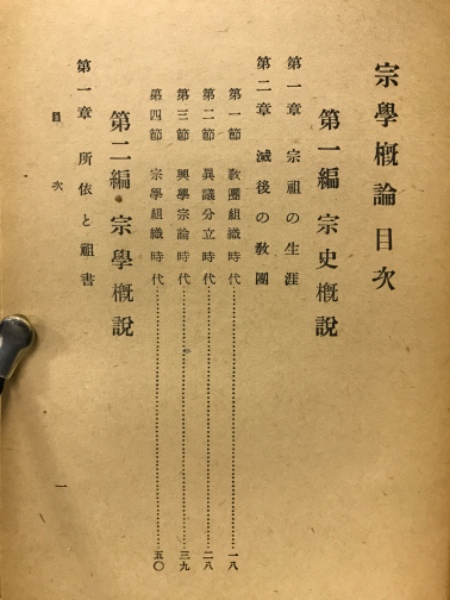 宗學概論目次
第一編 宗史概說
第一章 宗祖の生涯
第二章 滅後の教團
第一節 教團組織時代……一八
第二節 異議分立時代……二八
第三節 興學宗論時代……三九
第四節 宗學組織時代……五〇
第二編 宗學概說
第一章 所依と祖書
目次 一